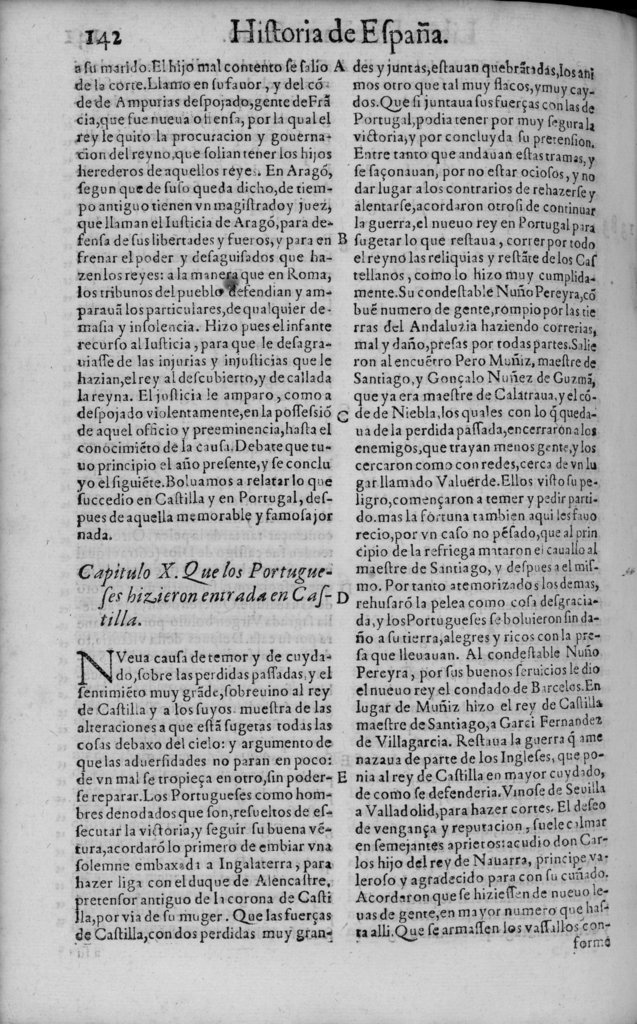 142 Historia de España.
a su marido.El hijo mal contento se salio
de la corte.Llamo en su fauor, y del cõ
de de Ampurias despojado,gente de Frã
cia,que fue nueua ofensa, por la qual el
rey le quito la procuracion y gouerna-
cion del reyno,que solian tener los hijos
herederos de aquellos reyes. En Aragõ,
segun que de suso queda dicho,de tiem-
po antiguo tienen vn magistrado y juez,
que llaman el Iusticia de Aragõ,para de-
fensa de sus libertades y fueros,y para en
frenar el poder y desaguisados que ha-
zen los reyes: a la manera que en Roma,
los tribunos del pueblo defendian y am-
parauã los particulares,de qualquier de-
masia y insolencia. Hizo pues el infante
recurso al Iusticia, para que le desagra-
uiasse de las injurias y injusticias que le
hazian,el rey al descubierto,y de callada
la reyna. El justicia le amparo, como a
despojado violentamente,en la possessiõ
de aquel oficio y preeminencia,hasta el
conocimiẽto de la causa.Debate que tu-
uo principio el año presente,y se conclu
yo el siguiẽte.Boluamos a relatar lo que
succedio en Castilla y en Portugal, des-
pues de aquella memorable y famosa jor
nada.
Capitulo X. Que los Portugue-
ses hizieron entrada en Cas-
tilla.
NVeua causa de temor y de cuyda-
do,sobre las perdidas passadas, y el
sentimiẽto muy grãde,sobreuino al rey
de Castilla y a los suyos. muestra de las
alteraciones a que estã sugetas todas las
cosas debaxo del cielo: y argumento de
que las aduersidades no paran en poco:
de vn mal se tropieça en otro,sin poder-
se reparar.Los Portugueses como hom-
bres denodados que son,resueltos de es-
secutar la victoria,y seguir su buena vẽ-
tura,acordarõ lo primero de embiar vna
solemne embaxada a Ingalaterra, para
hazer liga con el duque de Alencastre,
pretensor antiguo de la corona de Casti
lla,por via de su muger. Que las fuerças
de Castilla,con dos perdidas muy gran-
A
B
C
D
E
des y juntas,estauan quebrãtadas,los ani
mos otro que tal muy flacos,y muy cay-
dos.Que si juntaua sus fuerças con las de
Portugal,podia tener por muy segura la
victoria,y por concluyda su pretension.
Entre tanto que andauan estas tramas, y
se saçonauan, por no estar ociosos, y no
dar lugar a los contrarios de rehazerse y
alentarse,acordaron otrosi de continuar
la guerra,el nueuo rey en Portugal para
sugetar lo que restaua, correr por todo
el reyno las reliquias y restãte de los Cas
tellanos, como lo hizo muy cumplida-
mente.Su condestable Nuño Pereyra,cõ
buẽ numero de gente,rompio por las tie
rras del Andaluzia haziendo correrias,
mal y daño,presas por todas partes.Salie
ron al encuẽtro Pero Muñiz, maestre de
Santiago,y Gonçalo Nuñez de Guzmã,
que ya era maestre de Calatraua,y el cõ-
de de Niebla,los quales con lo q̃ queda-
ua de la perdida passada,encerraron a los
enemigos,que trayan menos gente,y los
cercaron como con redes,cerca de vn lu
gar llamado Valuerde.Ellos visto su pe-
ligro,començaron a temer y pedir parti-
do.mas la fortuna tambien aqui les fauo
recio,por vn caso no pẽsado,que al prin
cipio de la refriega mataron el cauallo al
maestre de Santiago, y despues a el mis-
mo. Por tanto atemorizados los demas,
rehusarõ la pelea como cosa desgracia-
da, y los Portugueses se boluieron sin da-
ño a su tierra,alegres y ricos con la pre-
sa que lleuauan. Al condestable Nuño
Pereyra , por sus buenos seruicios le dio
el nueuo rey el condado de Barcelos.En
lugar de Muñiz hizo el rey de Castilla
maestre de Santiago,a Garci Fernandez
de Villagarcia. Restaua la guerra q̃ ame
nazaua de parte de los Ingleses, que po-
nia al rey de Castilla en mayor cuydado,
de como se defenderia.Vinose de Seuilla
a Valladolid,para hazer cortes. El deseo
de vengança y reputacion, suele calmar
en semejantes aprietos:acudio don Car-
los hijo del rey de Nauarra, principe va-
leroso y agradecido para con su cuñado.
Acordaron que se hiziessen de nueuo le-
uas de gente,en mayor numero que has-
ta alli.Que se armassen los vassallos con-
forme